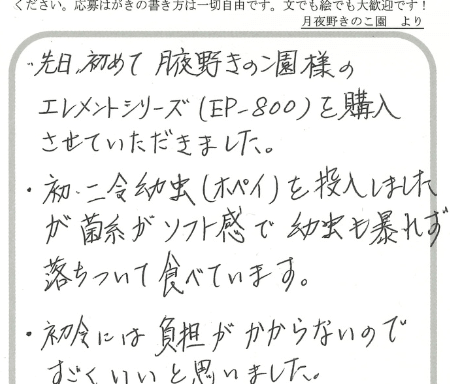 ください。応募はがきの書き方は一切自由です。文でも絵でも大歓迎です！
月夜野きのこ園　より
・先日、初めて月夜野きのこ園様の
エレメントシリーズ(EP-800)を購入
させていただきました。
・初・二令幼虫(ホペイ)を投入しました
が菌糸がソフト感で幼虫も暴れず
落ちついて食べています。
・初令には負担がかからないので
すごくいいと思いました。